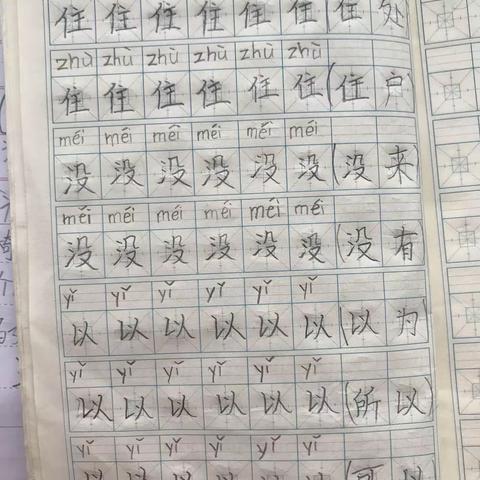 住 住 住 住 住 住 (住 处
zhù zhù zhù zhù zhù zhù
住 住 住 住 住 住 (住 户)
méi méi méi méi méi méi
没 没 没 没 没 没 (没 来)
méi méi méi méi méi méi
没 没 没 没 没 没 (没 有)
yǐ yǐ yǐ yǐ yǐ yǐ
以 以 以 以 以 以 (以 为)
yǐ yǐ yǐ yǐ yǐ yǐ
以 以 以 以 以 以 (所 以)
yǐ yǐ yǐ yǐ yǐ yǐ
以 以 以 以 以 以 (可 以